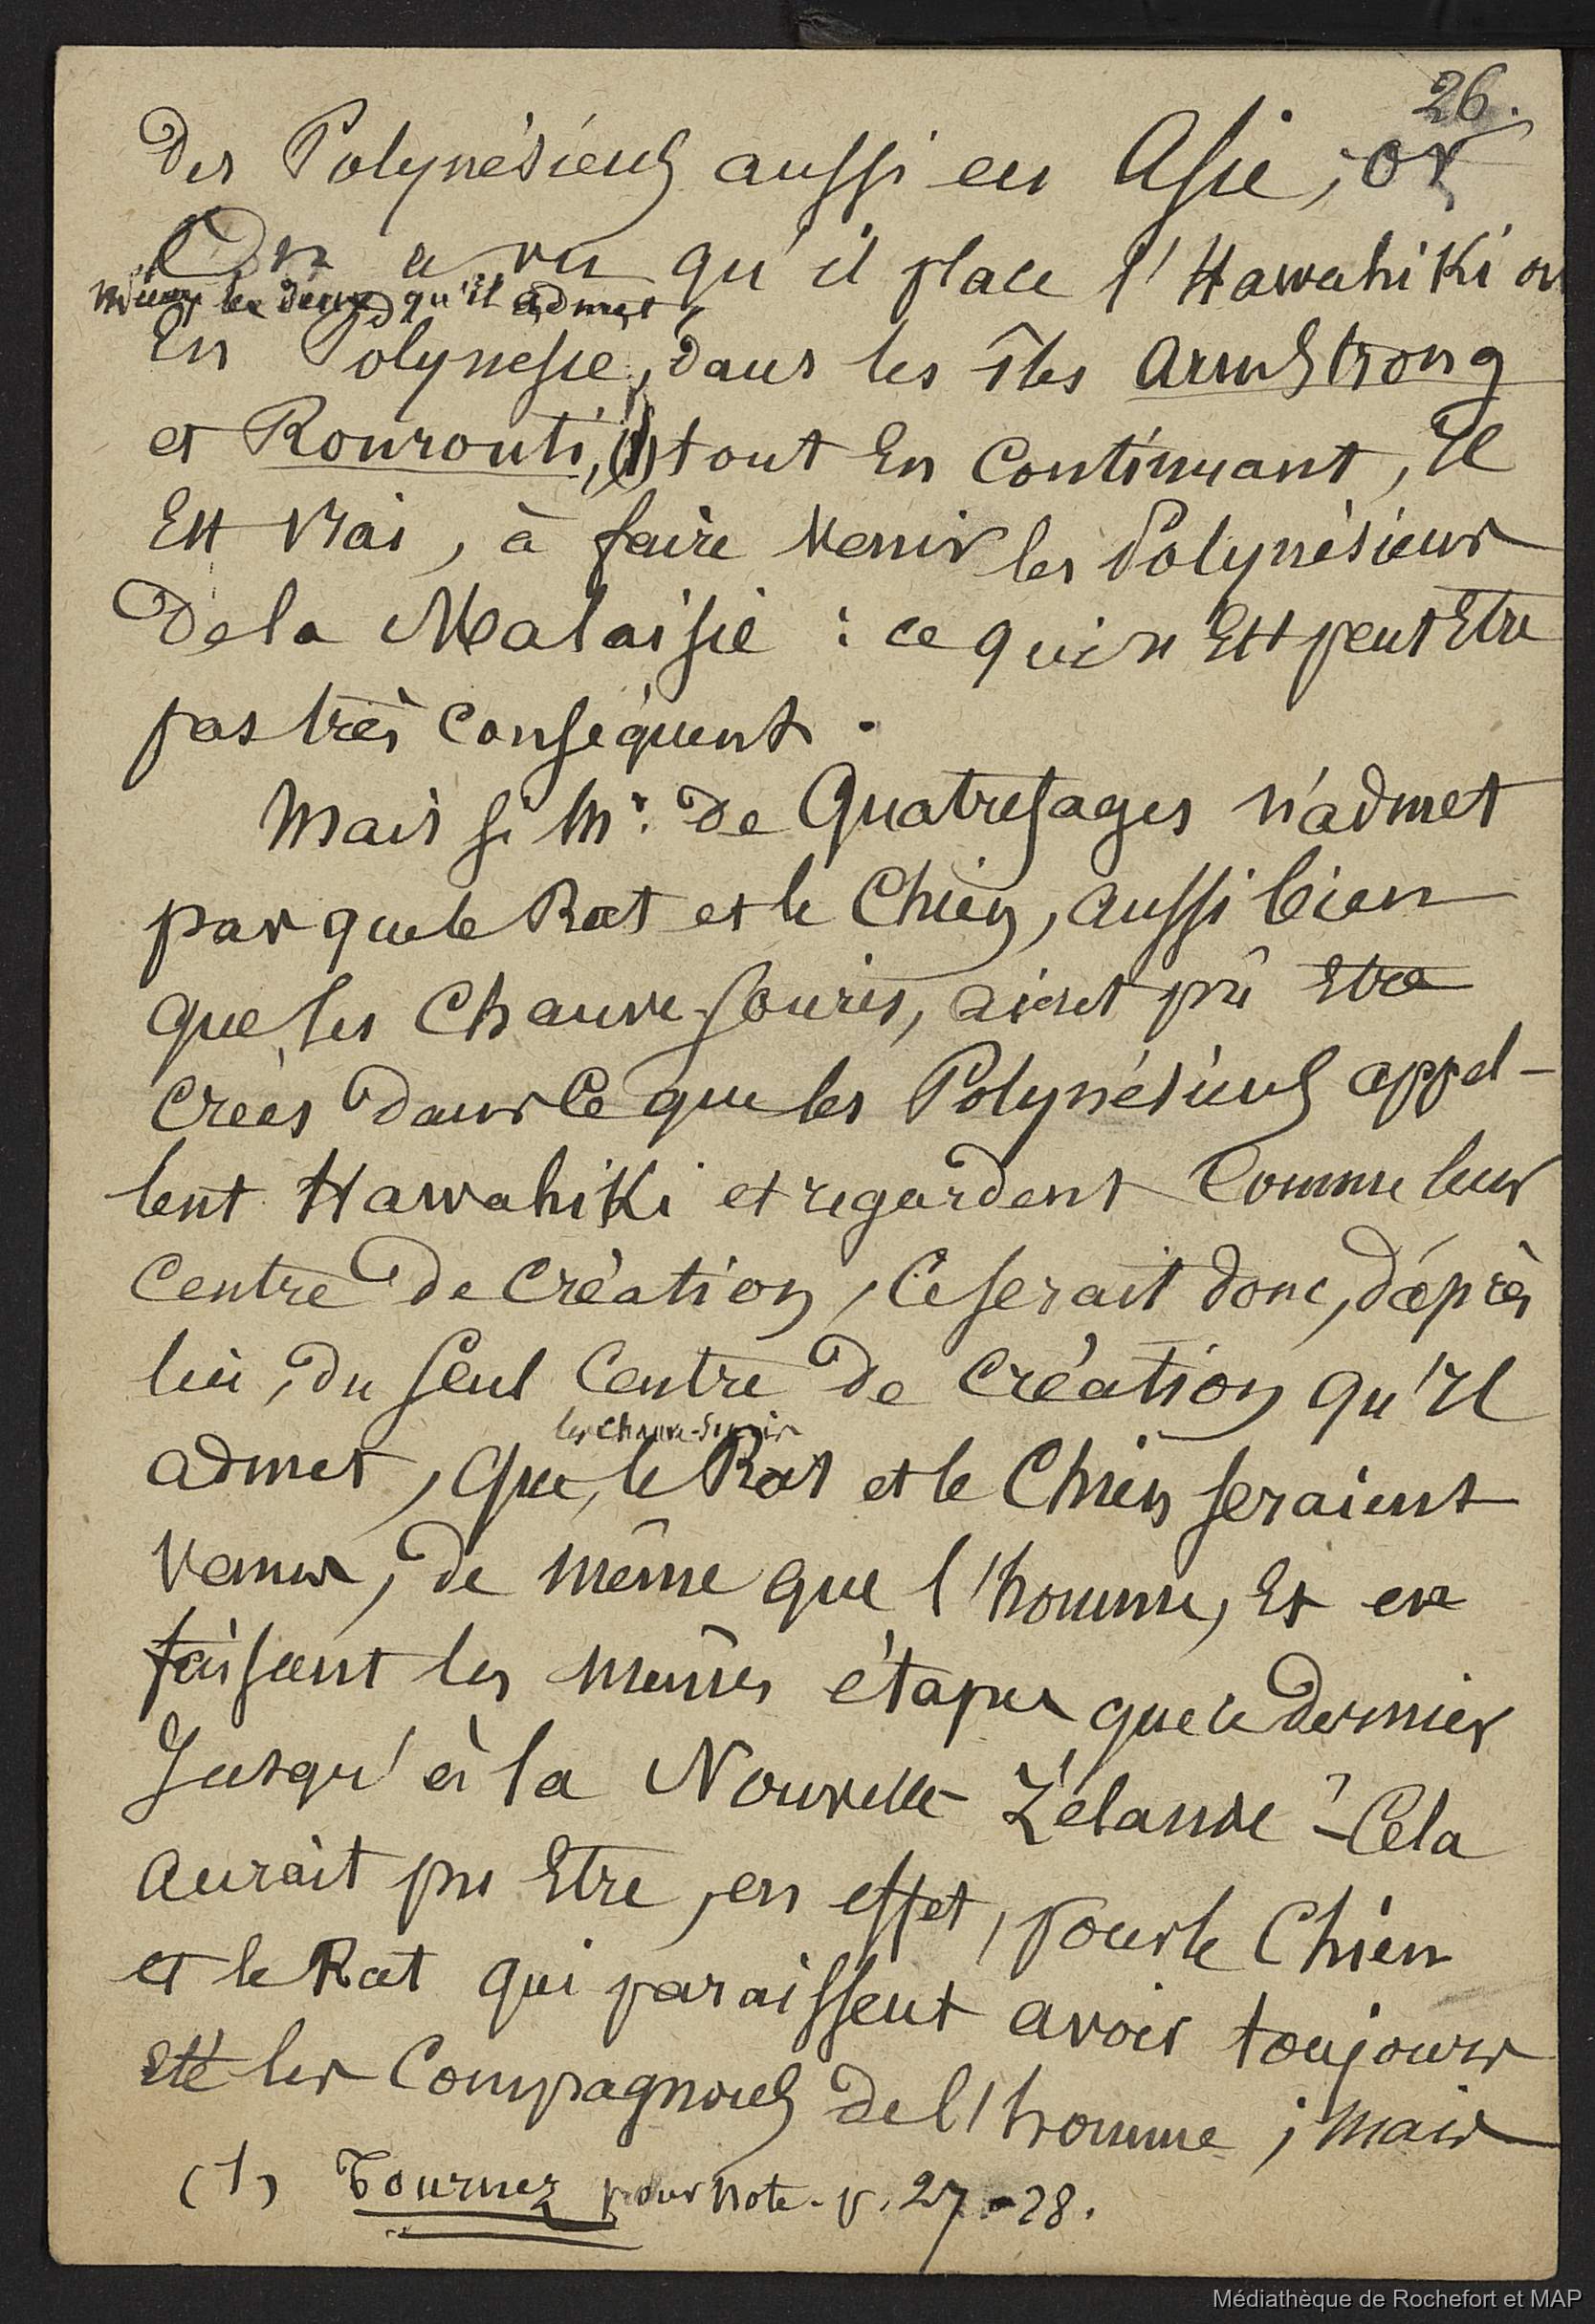 26.
des Polynésiens aussi en Asie, or
On a vu qu'il place l'Hawahiki ou
mieux les deux qu'il admet,
En Polynésie, dans les îles Armstrong
et Rourouti, (1) tout En Continuant, Il
Est vrai, à faire venir les Polynésiens
de la Malaisie : ce qui n'Est peut Etre
pas très Conséquent.
Mais si Mr. de Quatrefages n'admet
pas que le Rat et le Chien, aussi bien
que les Chauve-Souris, aient pû Etre
Créés dans Ce que les Polynésiens appel-
lent Hawahiki et regardent Comme leur
Centre de Création, Ce serait donc, d'après
lui, du seul Centre de Création qu'Il
les Chauve-Souris
admet, que, le Rat et le Chien seraient
Venus, de même que l'homme, Et en
faisant les mêmes étapes que ce dernier
Jusqu'à la Nouvelle Zélande ? - Cela
aurait pu Etre, en effet, pour le Chien
et le Rat qui paraissent avoir toujours
Eté les Compagnons de l'homme ; mais
(1) Tournez pour note. p. 27-28.
Médiathèque de Rochefort et MAP